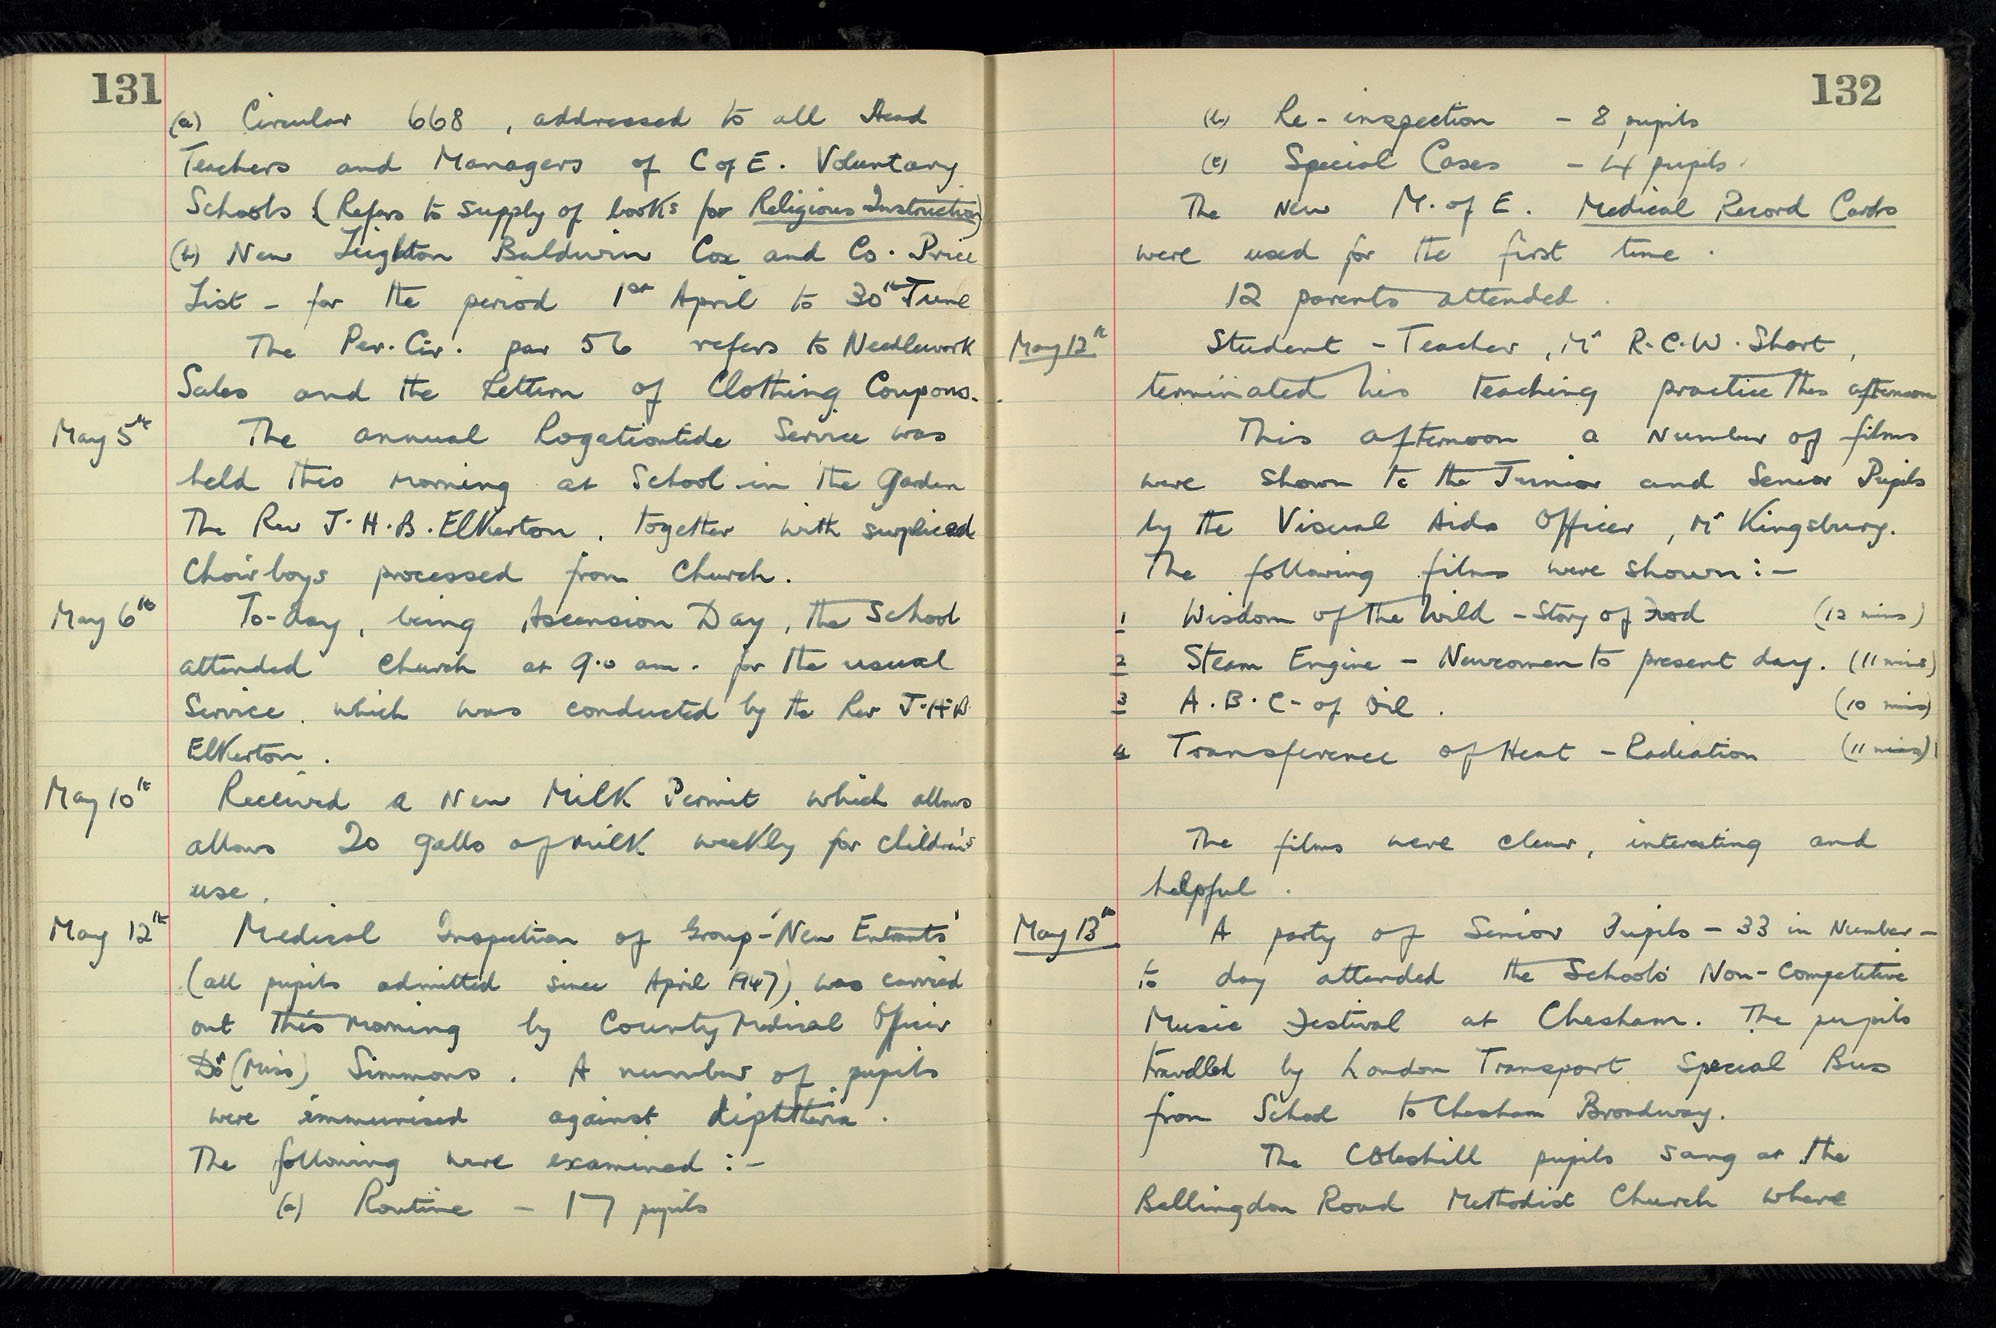 131
(a) Circular 668, addressed to all Head
Teachers and Managers of C of E. Voluntary
Schools (Refers to supply of books for Religious Instruction)
(b) New Leighton Baldwin Cox and Co. Price
List - for the period 1st April to 30th June
The Per. Cir. par 56 refers to Needlework
Sales and the Return of Clothing Coupons.
May 5th The annual Rogationtide Service was
held this morning at School in the Garden
The Rev J. H. B. Elkerton, together with surpliced
Choirboys processed from Church.
May 6th To-day, being Ascension Day, the School
attended Church at 9.0 am. for the usual
Service, which was conducted by the Rev J.H.B
Elkerton.
May 10th Received a New Milk Permit which allows
allows 20 galls of milk weekly for children's
use.
May 12th Medical Inspection of Group-'New Entrants'
(all pupils admitted since April 1947) was carried
out this morning by County Medical Officer
Dr (Miss) Simmons. A number of pupils
were immunised against diphtheria.
The following were examined :-
(a) Routine - 17 pupils
132
(b) Re-inspection - 8 pupils
(c) Special Cases - 4 pupils.
The New M. of E. Medical Record Cards
were used for the first time.
12 parents attended.
May 12th Student-Teacher, Mr R.C.W. Short,
terminated his teaching practice this afternoon
This afternoon a number of films
were shown to the Junior and Senior Pupils
by the Visual Aids Officer, Mr Kingsbury.
The following films were shown :-
1 Wisdom of the Wild - Story of Food (12 mins)
2 Steam Engine - Newcomen to present day. (11 mins)
3 A.B.C- of Oil. (10 mins)
4 Transference of Heat - Radiation (11 mins)
The films were clear, interesting and
helpful.
May 13th A party of Senior Pupils - 33 in Number -
to day attended the Schools' Non-Competitive
Music Festival at Chesham. The pupils
travelled by London Transport Special Bus
from School to Chesham Broadway.
The Coleshill pupils sang at the
Bellingdon Road Methodist Church where